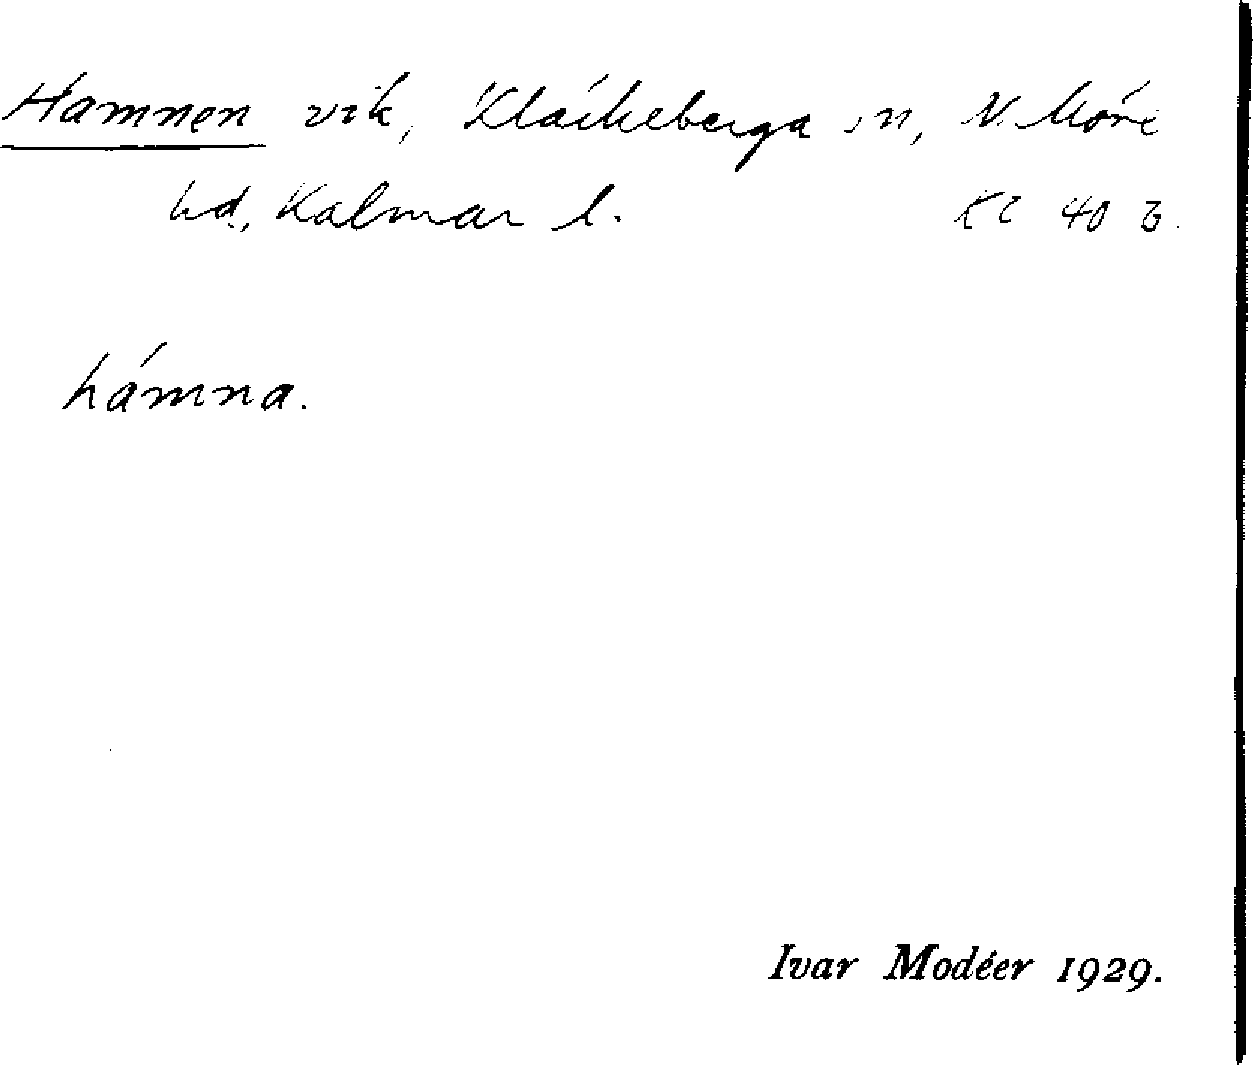 Hamnen vik, Kläckeberga sn, N. Möre
hd, Kalmar l.
hámna.
Ivar Modéer 1929.